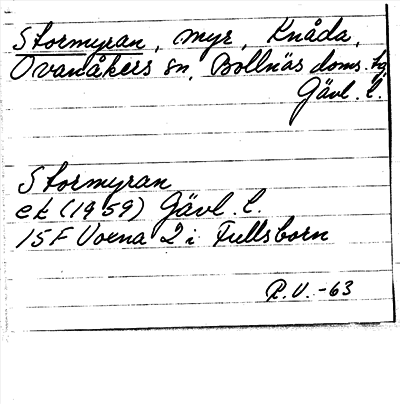 Stormyran, myr, Knåda,
Ovanåkers sn, Bollnäs doms. hg
Gävl. l.
Stormyran
ek (1959) Gävl. l.
15F Voxna 2 i Fullsborn
R.V. -63